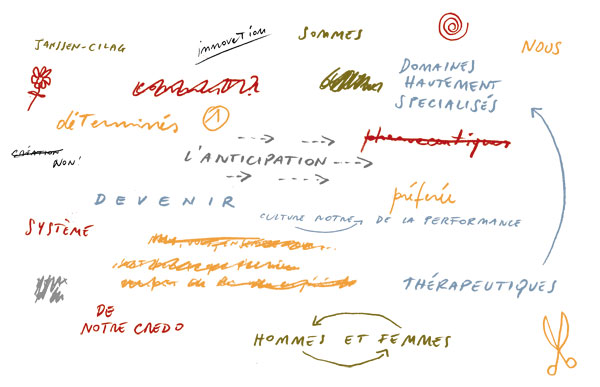 JANSSEN-CILAG
innovation
SOMMES
NOUS
DOMAINES
HAUTEMENT
SPECIALISÉS
déTerminés
1
pharmaceutiques
CRÉATION
NON!
L'ANTICIPATION
DEVENIR
préférée
CULTURE NOTRE DE LA PERFORMANCE
SYSTÈME
THÉRAPEUTIQUES
DE
NOTRE CREDO
HOMMES ET FEMMES